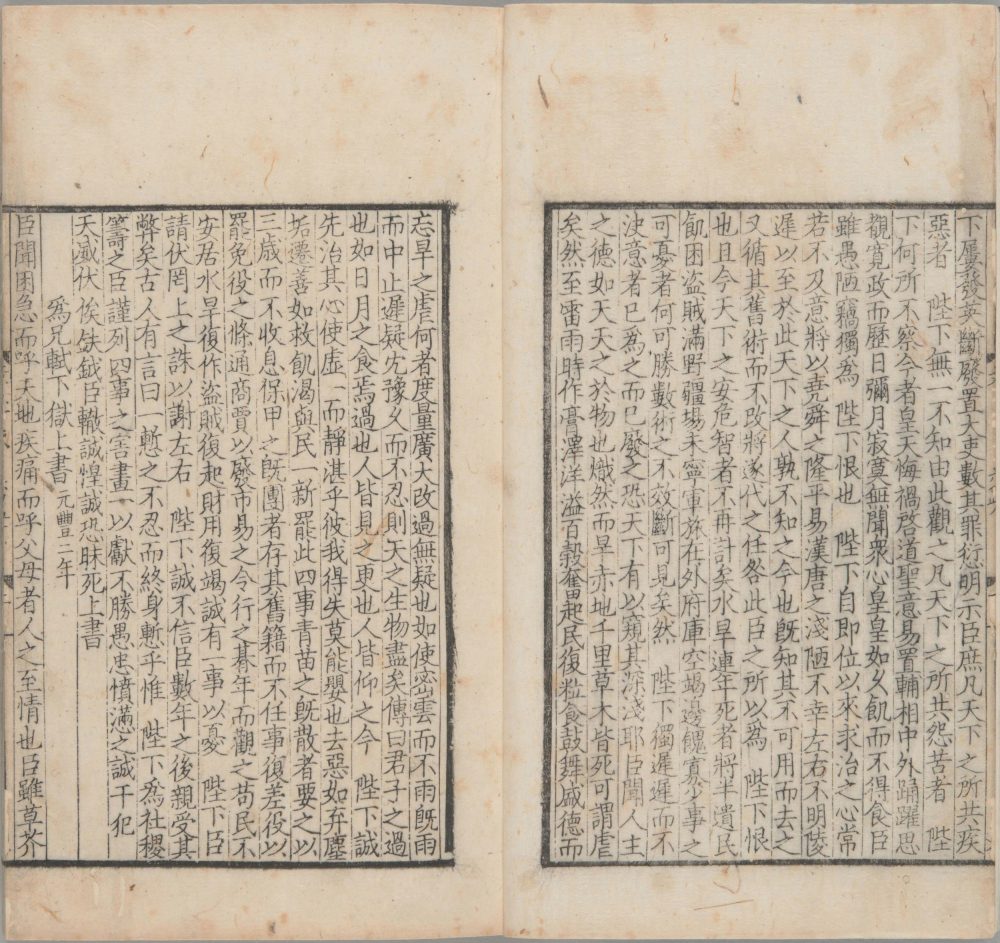 下屢發英斷廢置大吏數其罪衍明示臣庶凡天下之所共疾
惡者 陛下無一不知由此觀之凡天下之所共怨苦者 陛
下何所不察今者皇天悔禍啓道聖意易置輔相中外踊躍思
觀寬政而歷日彌月寂莫無聞衆心皇皇如久飢而不得食臣
雖愚陋竊獨爲 陛下恨也 陛下自即位以來求治之心常
若不及意將以堯舜之隆平易漢唐之淺陋不幸左右不明陵
遲以至於此天下之人孰不知之今也既知其不可用而去之
又循其舊術而不改將遂代之任咎此臣之所以爲 陛下恨
也且今天下之安危智者不再計矣水旱連年死者將半遺民
飢困盜賊滿野疆場未寧軍旅在外府庫空竭邊餽寡少事之
可憂者何可勝數術之不效斷可見矣然 陛下獨遲遲而不
決意者已爲之而已廢之恐天下有以窺其深淺耶臣聞人主
之德如天天之於物也熾然而旱赤地千里草木皆死可謂虐
矣然至雷雨時作膏澤洋溢百穀奮起民復粒食鼓舞咸德而
忘旱之虐何者度量廣大改過無疑也如使密雲而不雨既雨
而中止遲疑尤豫久而不忍則天之生物盡矣傳曰君子之過
也如日月之食焉過也人皆見之更也人皆仰之今 陛下誠
先治其心使虛一而靜湛乎彼我得失莫能嬰也去惡如弃塵
垢遷善如救飢渴與民一新罷此四事青苗之既散者要之以
三歲而不收息保甲之既團者存其舊籍而不任事復差役以
罷免役之條通商賈以廢市易之令行之朞年而觀之苟民不
安居水旱復作盜賊復起財用復竭誠有一事以憂 陛下臣
請伏罔上之誅以謝左右 陛下誠不信臣數年之後親受其
弊矣古人有言曰一慙之不忍而終身慙乎惟 陛下爲社稷
籌之臣謹列四事之害畫一以獻不勝愚忠憤滿之誠干犯
天威伏俟鈇鉞臣轍誠惶誠恐昧死上書
爲兄軾下獄上書 元豐二年
臣聞困急而呼天地疾痛而呼父母者人之至情也臣雖草芥